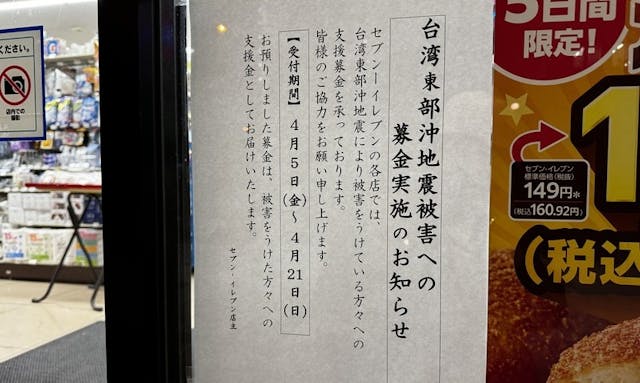 台湾東部沖地震被害への
募金実施のお知らせ
セブン－イレブンの各店では、
台湾東部沖地震により被害をうけている方々への
支援募金を承っております。
皆様のご協力をお願い申し上げます。
【受付期間】4月5日(金)～4月21日(日)
お預りしました募金は、被害をうけた方々への
支援金としてお届けいたします。
セブン－イレブン店主
ください。
店内での
撮影
5日間
限定!
セブン-イレブン
標準価格(税抜)
149円*
(税込160.92円)
1
(税込